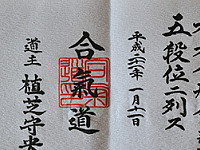 五段位ニ列ス
平成二十一年一月十一日
合氣道
道主 植芝守央